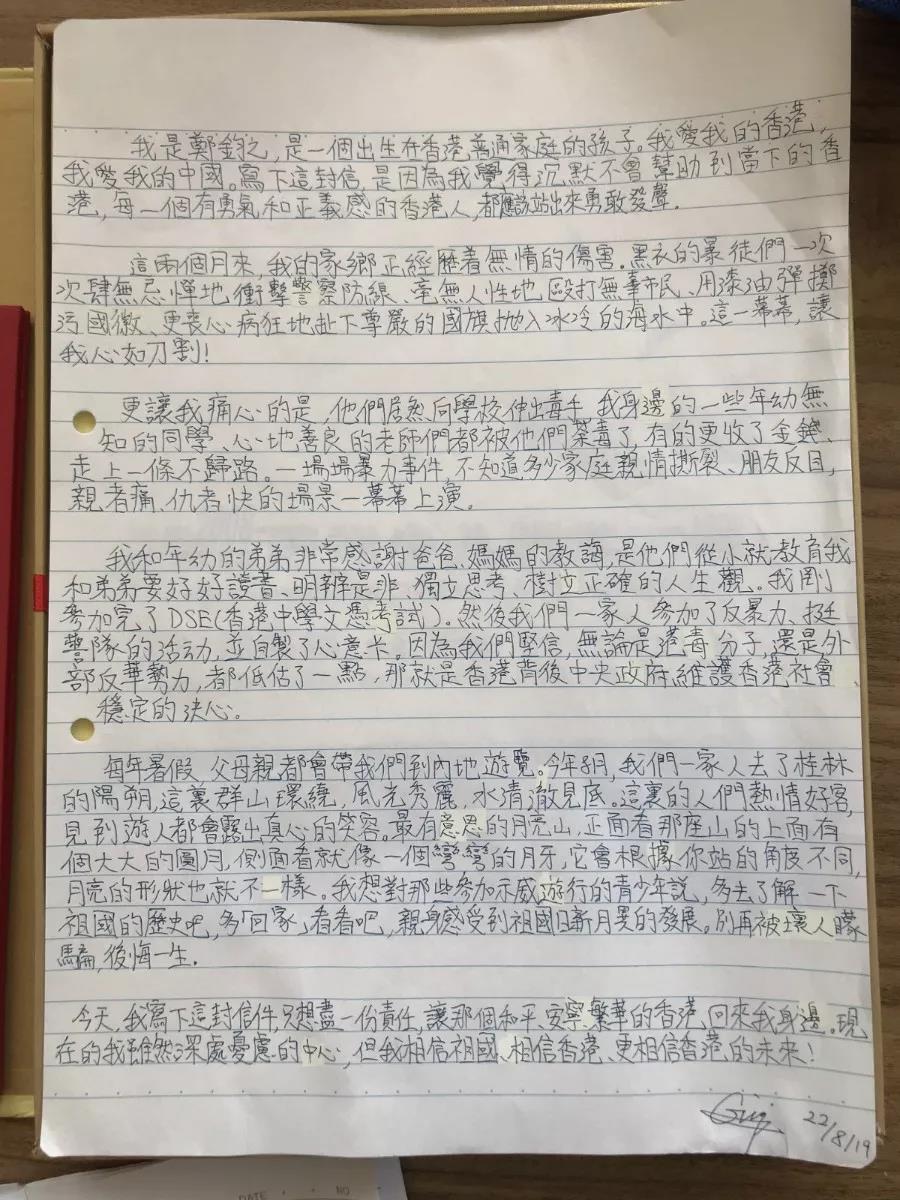 我是鄭鈞之，是一個出生在香港普通家庭的孩子。我愛我的香港，
我愛我的中國。寫下這封信，是因為我覺得沉默不會幫助到當下的香
港，每一個有勇氣和正義感的香港人，都應該站出來勇敢發聲。
這兩個月來，我的家鄉正經歷着無情的傷害。黑衣的暴徒們一次
次肆無忌憚地衝擊警察防線、毫無人性地毆打無辜市民、用漆油彈擲
污國徽、更喪心病狂地扯下尊嚴的國旗拋入冰冷的海水中。這一幕幕，讓
我心如刀割！
更讓我痛心的是，他們居然向學校伸出毒手，我身邊的一些年幼無
知的同學、心地善良的老師們都被他們荼毒了，有的更收了金錢、
走上一條不歸路。一場場暴力事件，不知道多少家庭親情撕裂、朋友反目，
親者痛、仇者快的場景一幕幕上演。
我和年幼的弟弟非常感謝爸爸、媽媽的教誨，是他們從小就教育我
和弟弟要好好讀書、明辨是非、獨立思考、樹立正確的人生觀。我剛
參加完了DSE(香港中學文憑考試)。然後我們一家人參加了反暴力、挺
警隊的活动，並自製了心意卡。因為我們堅信，無論是港毒分子，還是外
部反華勢力，都低估了一點，那就是香港背後中央政府維護香港社會、
穩定的決心。
每年暑假，父母親都會帶我們到內地遊覽。今年8月，我們一家人去了桂林
的陽朔，這裏群山環繞，風光秀麗，水清澈見底。這裏的人們熱情好客，
見到遊人都會露出真心的笑容。最有意思的月亮山，正面看那座山的上面有
個大大的圓月，側面看就像一個彎彎的月牙，它會根據你站的角度不同，
月亮的形狀也就不一樣。我想對那些參加示威遊行的青少年說，多去了解一下
祖國的歷史吧，多「回家」看看吧，親身感受到祖國日新月異的發展。別再被壞人矇
騙，後悔一生。
今天，我寫下這封信件，只想盡一份責任，讓那個和平、安寧、繁華的香港，回來我身邊。現
在的我雖然深處憂慮的中心，但我相信祖國、相信香港、更相信香港的未來！
22/8/19
DATE
NO